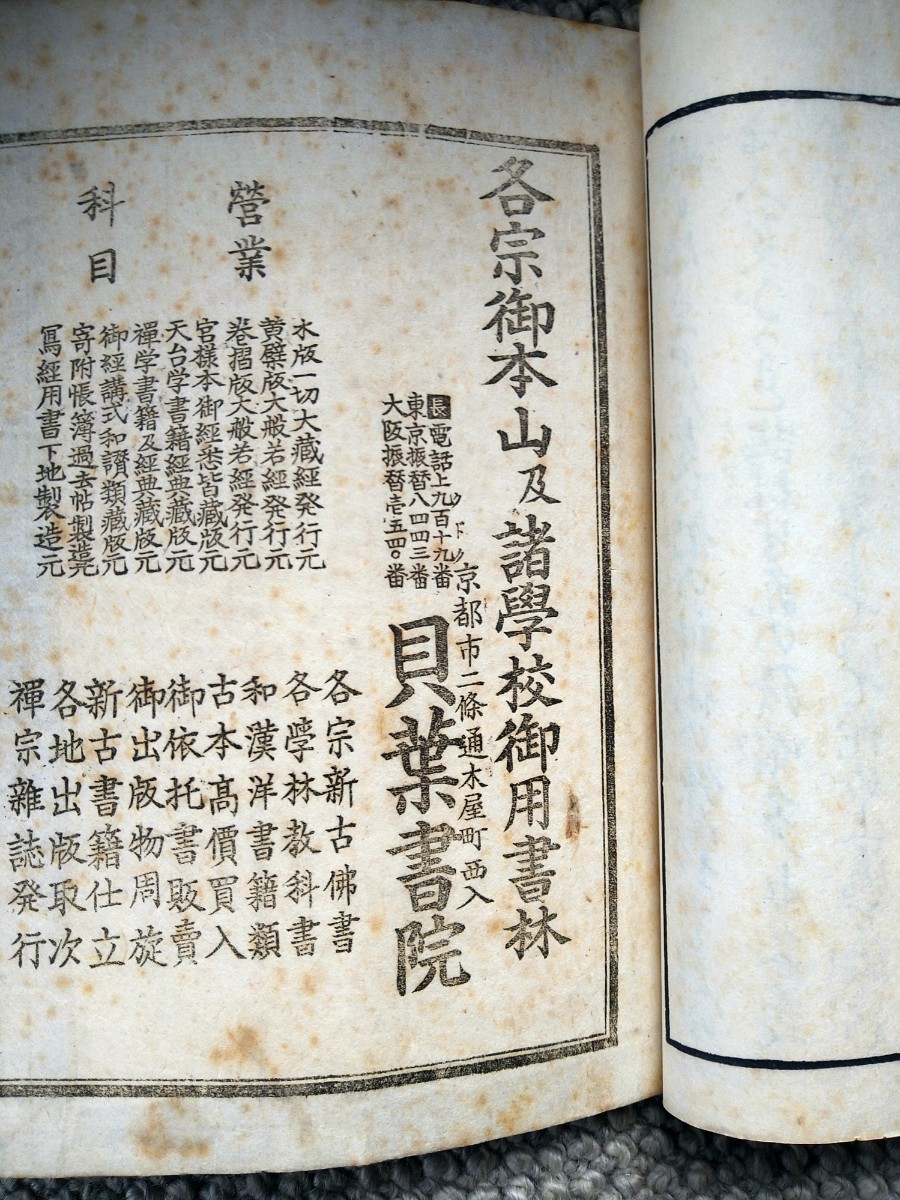 各宗御本山及諸學校御用書林
京都市二條通木屋町西入
貝葉書院
長電話上九百十九番
東京振替八四四三番
大阪振替壱五四〇番
營業
科目
木版一切大藏經発行元
黄檗版大般若經発行元
巻摺版大般若經発行元
宮様本御經悉皆藏版元
天台学書籍經典藏版元
禪学書籍及經典藏版元
御經講式和讃類藏版元
寄附帳簿過去帖製造元
冩經用書下地製造元
各宗新古佛書
各學林教科書
和漢洋書籍類
古本髙價買入
御依托書販賣
御出版物周旋
新古書籍仕立
各地出版取次
禪宗雜誌発行